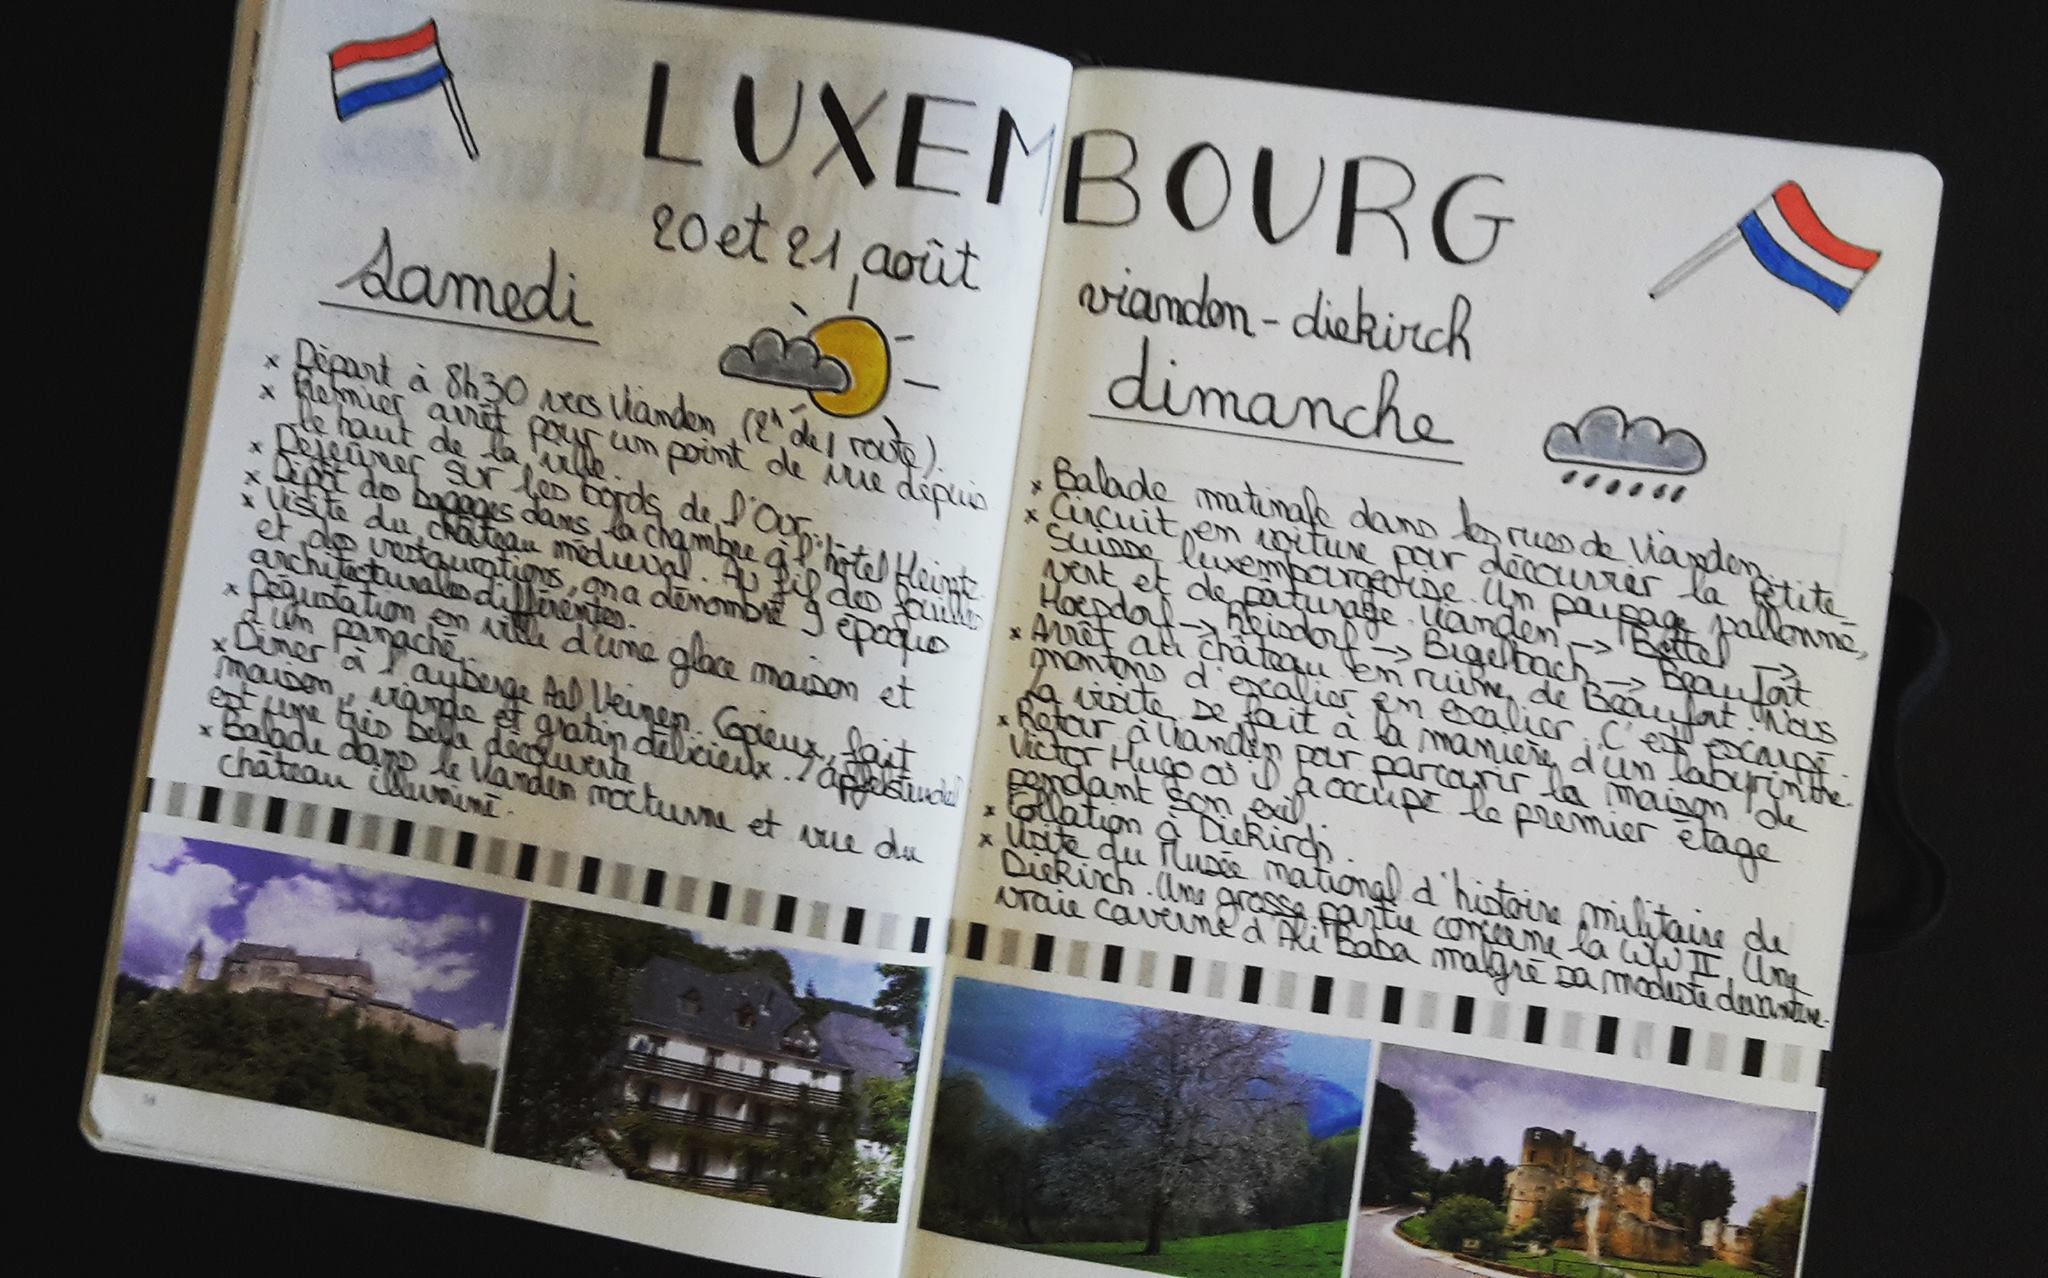 LUXEMBOURG
20 et 21 août
Samedi
x Départ à 8h30 vers Vianden (2h de route).
x Premier arrêt pour un point de vue depuis
le haut de la ville.
x Déjeuner sur les bords de l'Our.
x Dépôt des bagages dans la chambre à l'hôtel Heintz.
x Visite du château médiéval. Au fil des fouilles
et des restaurations, on a dénombré 9 époques
architecturales différentes.
x Dégustation en ville d'une glace maison et
d'un panaché.
x Dîner à l'auberge Aal Veinen. Copieux, fait
maison, viande et gratin délicieux. L'apfelstrudel
est une très belle découverte
x Balade dans le Vianden nocturne et vue du
château illuminé.
vianden - diekirch
dimanche
x Balade matinale dans les rues de Vianden.
x Circuit en voiture pour découvrir la Petite
Suisse luxembourgeoise. Un paysage vallonné,
vert et de pâturage. Vianden → Bettel →
Hoesdorf → Reisdorf → Bigelbach → Beaufort.
x Arrêt au château en ruine de Beaufort. Nous
montons d'escalier en escalier. C'est escarpé.
La visite se fait à la manière d'un labyrinthe.
x Retour à Vianden pour parcourir la maison de
Victor Hugo où il a occupé le premier étage
pendant son exil.
x Collation à Diekirch.
x Visite du Musée national d'histoire militaire de
Diekirch. Une grosse partie concerne la WW II. Une
vraie caverne d'Ali Baba malgré sa modeste devanture.